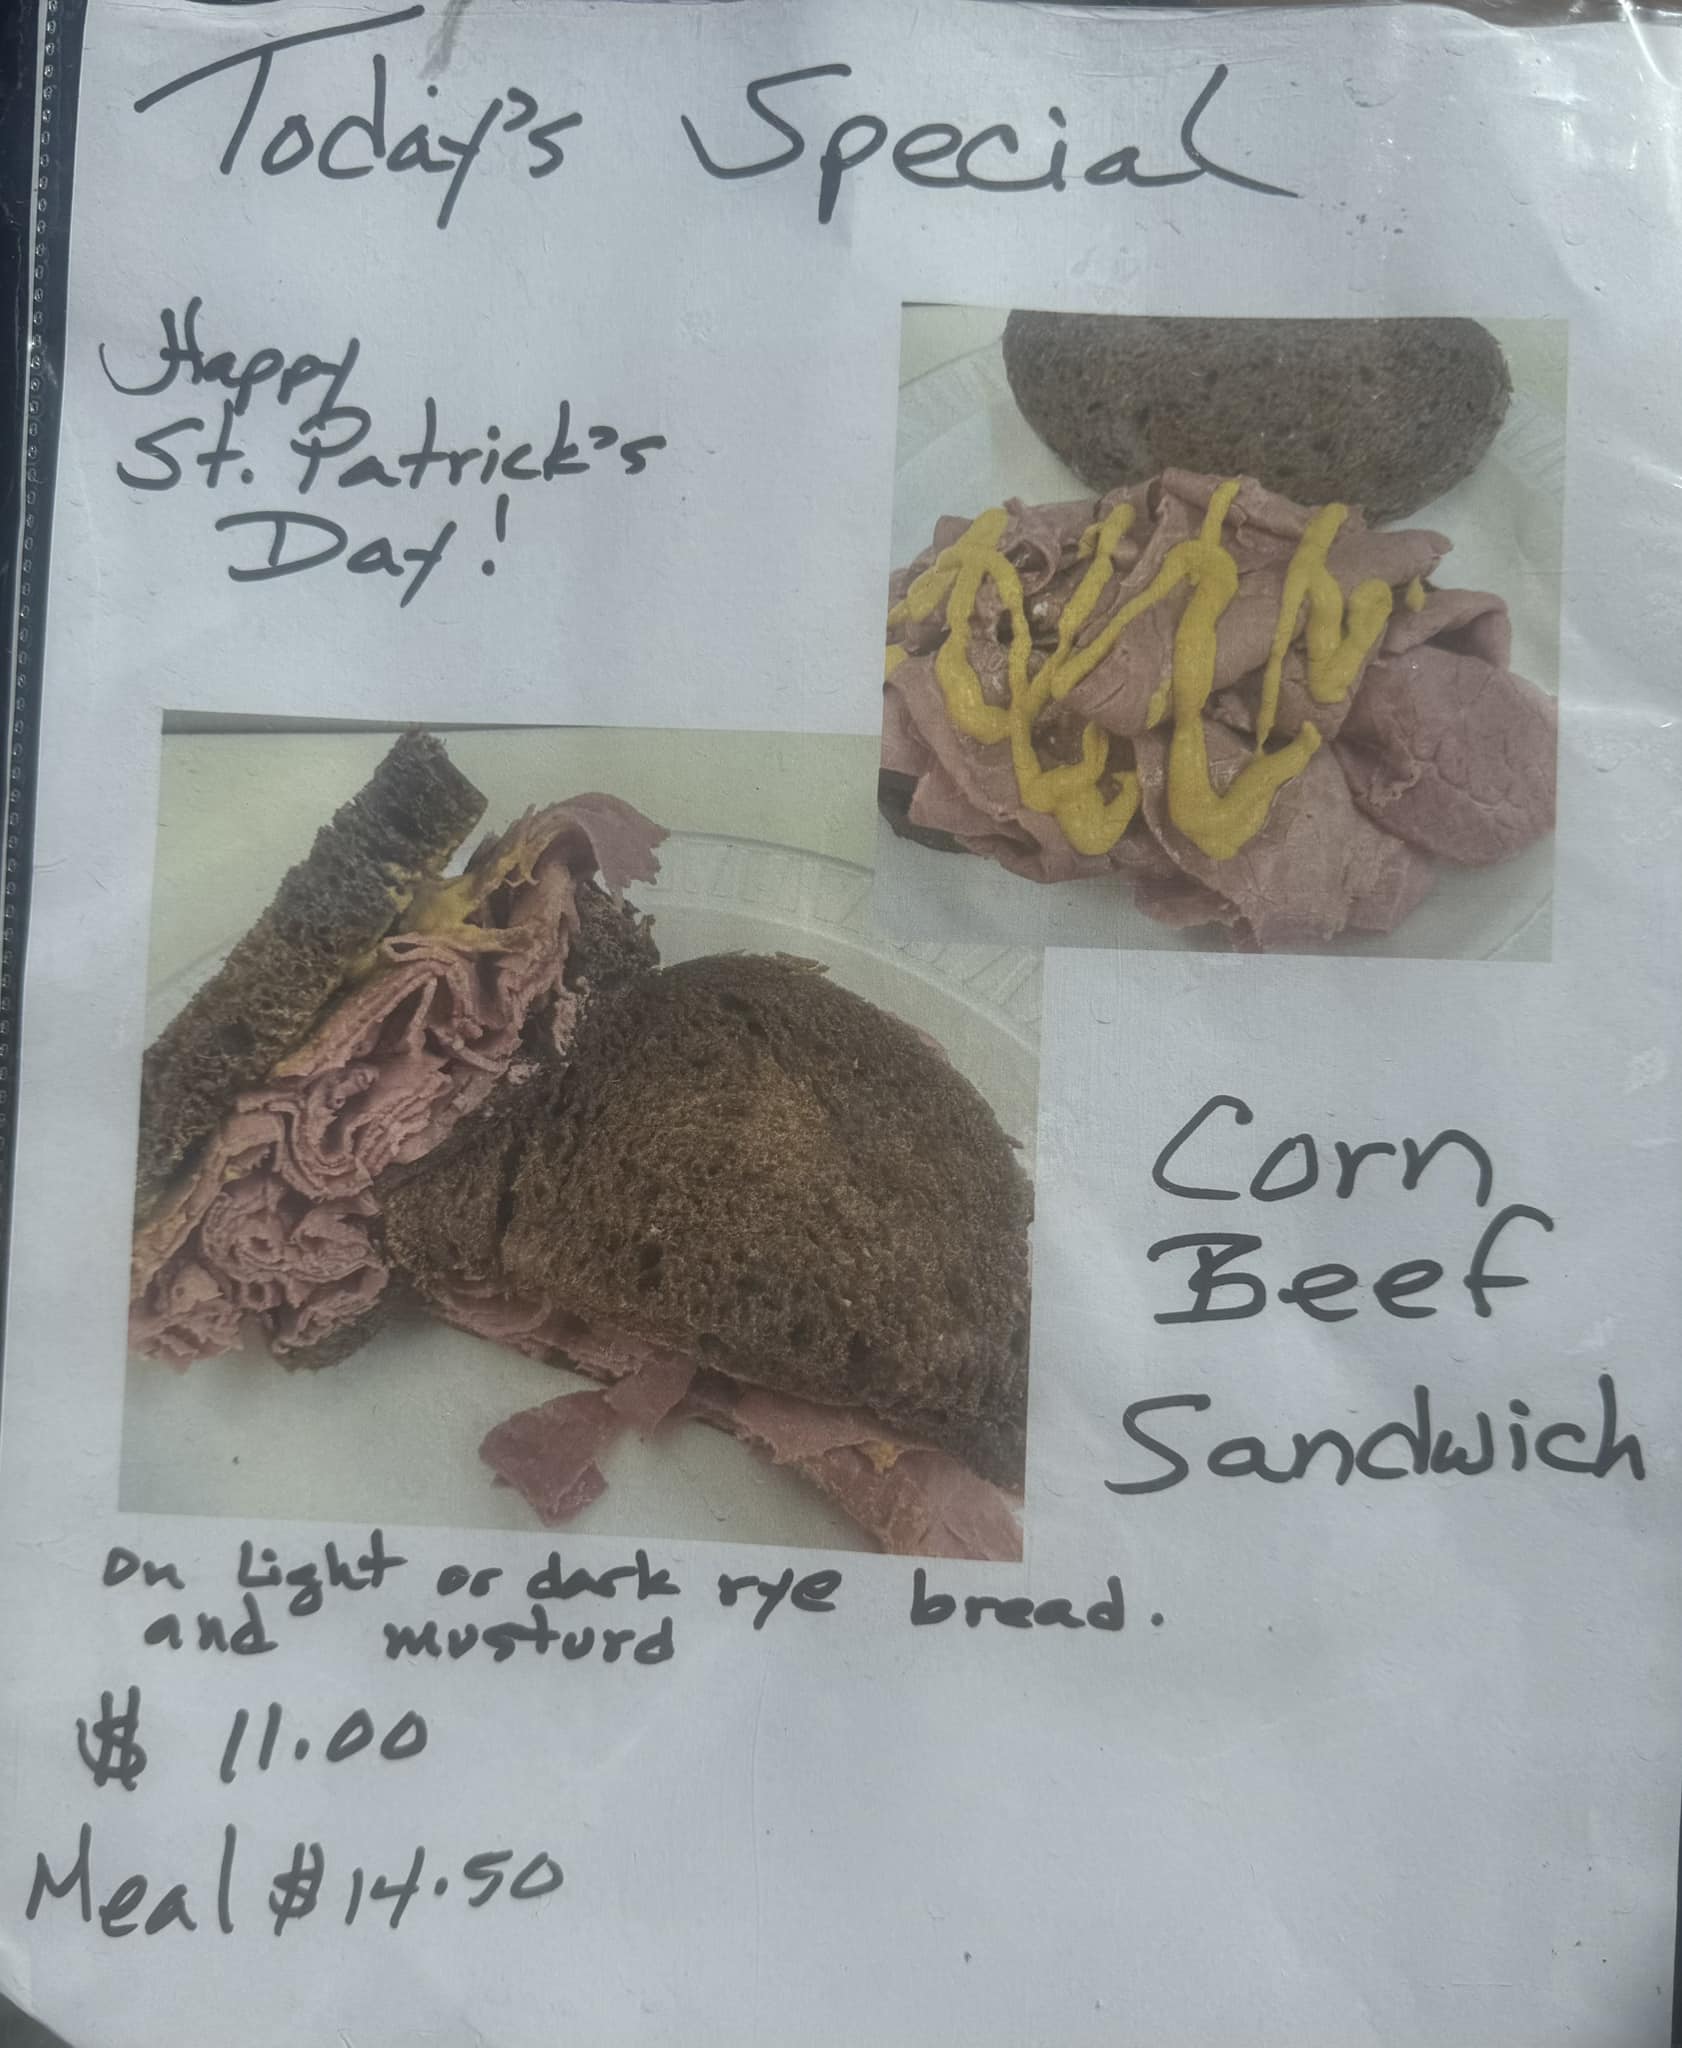 Today's Special
Happy
St. Patrick's
Day!
Corn
Beef
Sandwich
on Light or dark rye bread.
and musturd
$ 11.00
Meal $14.50